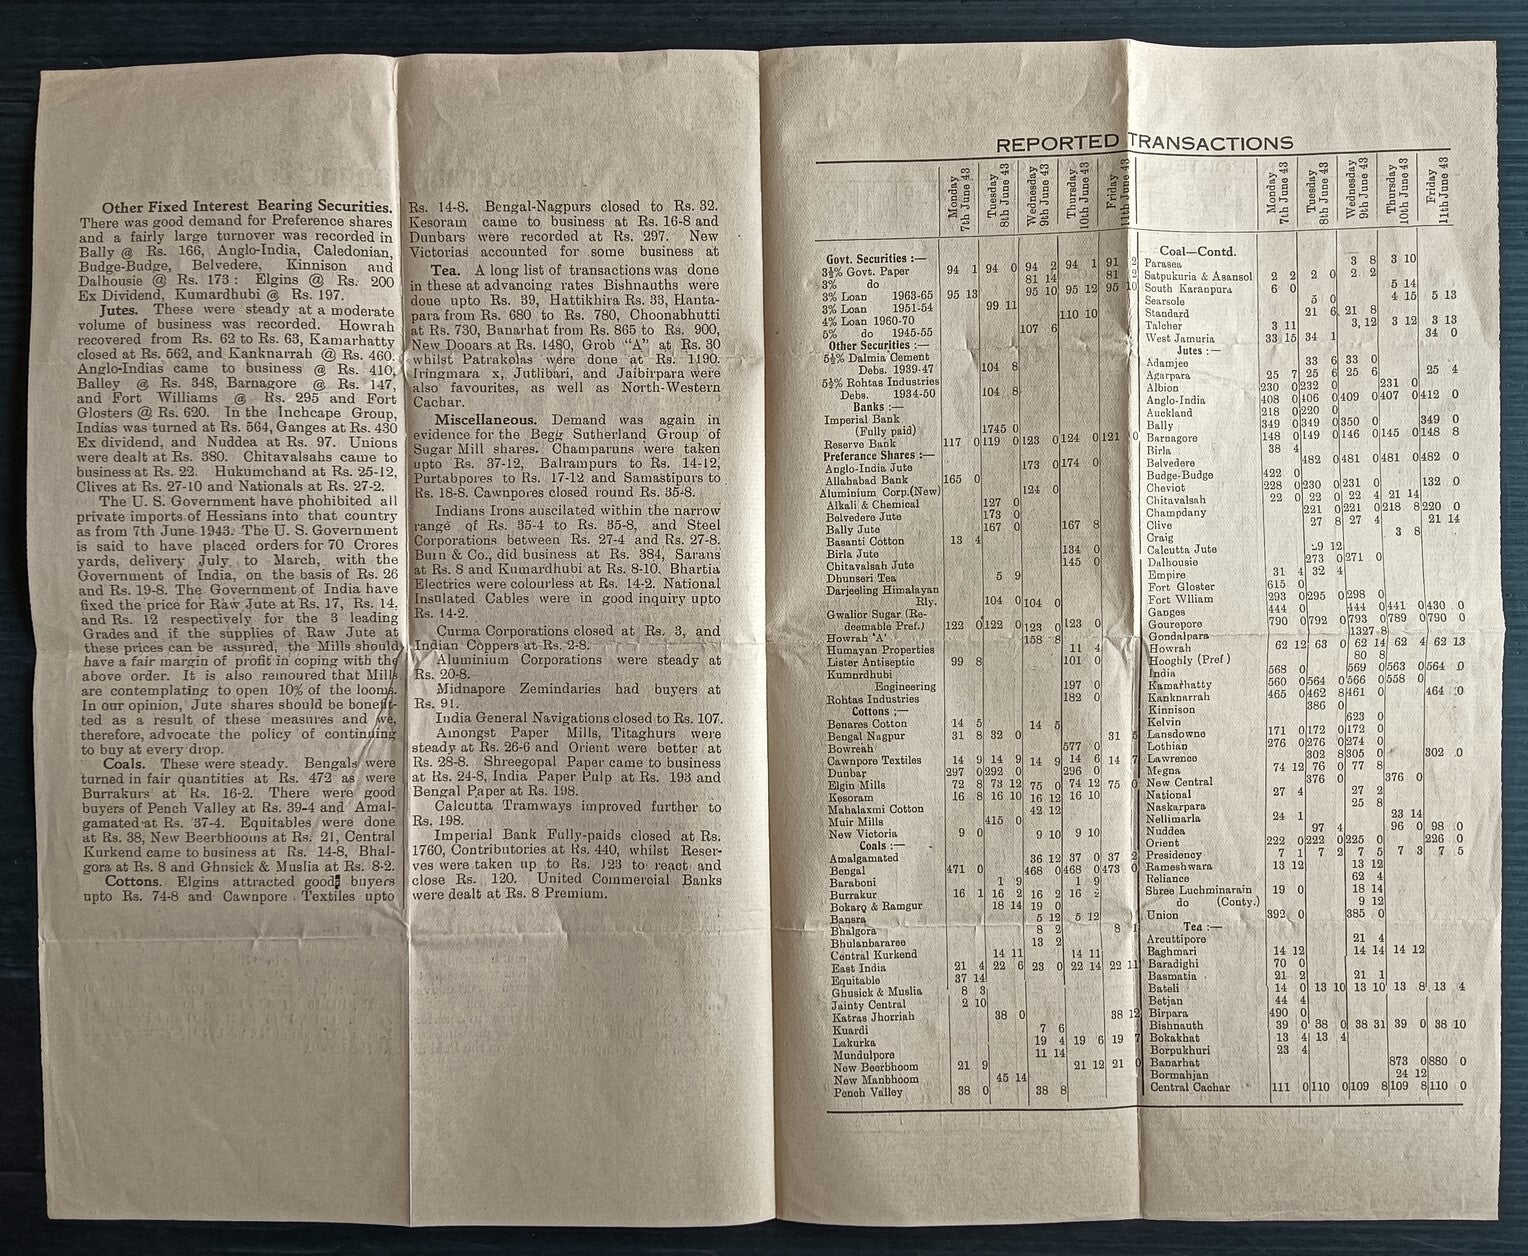 Other Fixed Interest Bearing Securities.
There was good demand for Preference shares
and a fairly large turnover was recorded in
Bally @ Rs. 166, Anglo-India, Caledonian,
Budge-Budge, Belvedere, Kinnison and
Dalhousie @ Rs. 173 : Elgins @ Rs. 200
Ex Dividend, Kumardhubi @ Rs. 197.
Jutes. These were steady at a moderate
volume of business was recorded. Howrah
recovered from Rs. 62 to Rs. 63, Kamarhatty
closed at Rs. 562, and Kanknarrah @ Rs. 460.
Anglo-Indias came to business @ Rs. 410,
Balley @ Rs. 348, Barnagore @ Rs. 147,
and Fort Williams @ Rs. 295 and Fort
Glosters @ Rs. 620. In the Inchcape Group,
Indias was turned at Rs. 564, Ganges at Rs. 430
Ex dividend, and Nuddea at Rs. 97. Unions
were dealt at Rs. 380. Chitavalsahs came to
business at Rs. 22. Hukumchand at Rs. 25-12,
Clives at Rs. 27-10 and Nationals at Rs. 27-2.
The U. S. Government have phohibited all
private imports of Hessians into that country
as from 7th June 1943. The U. S. Government
is said to have placed orders for 70 Crores
yards, delivery July to March, with the
Government of India, on the basis of Rs. 26
and Rs. 19-8. The Government of India have
fixed the price for Raw Jute at Rs. 17, Rs. 14.
and Rs. 12 respectively for the 3 leading
Grades and if the supplies of Raw Jute at
these prices can be assured, the Mills should
have a fair margin of profit in coping with the
above order. It is also remoured that Mills
are contemplating to open 10% of the looms.
In our opinion, Jute shares should be benefit-
ted as a result of these measures and we,
therefore, advocate the policy of continuing
to buy at every drop.
Coals. These were steady. Bengals were
turned in fair quantities at Rs. 472 as were
Burrakurs at Rs. 16-2. There were good
buyers of Pench Valley at Rs. 39-4 and Amal-
gamated at Rs. 37-4. Equitables were done
at Rs. 38, New Beerbhooms at Rs. 21, Central
Kurkend came to business at Rs. 14-8, Bhal-
gora at Rs. 8 and Ghusick & Muslia at Rs. 8-2.
Cottons. Elgins attracted good buyers
upto Rs. 74-8 and Cawnpore Textiles upto
Rs. 14-8. Bengal-Nagpurs closed to Rs. 32.
Kesoram came to business at Rs. 16-8 and
Dunbars were recorded at Rs. 297. New
Victorias accounted for some business at
Tea. A long list of transactions was done
in these at advancing rates Bishnauths were
done upto Rs. 39, Hattikhira Rs. 33, Hanta-
para from Rs. 680 to Rs. 780, Choonabhutti
at Rs. 730, Banarhat from Rs. 865 to Rs. 900,
New Dooars at Rs. 1480, Grob "A" at Rs. 30
whilst Patrakolas were done at Rs. 1190.
Iringmara x, Jutlibari, and Jaibirpara were
also favourites, as well as North-Western
Cachar.
Miscellaneous. Demand was again in
evidence for the Begg Sutherland Group of
Sugar Mill shares. Champaruns were taken
upto Rs. 37-12, Balrampurs to Rs. 14-12,
Purtabpores to Rs. 17-12 and Samastipurs to
Rs. 18-8. Cawnpores closed round Rs. 35-8.
Indians Irons auscilated within the narrow
range of Rs. 35-4 to Rs. 35-8, and Steel
Corporations between Rs. 27-4 and Rs. 27-8.
Burn & Co., did business at Rs. 384, Sarans
at Rs. 8 and Kumardhubi at Rs. 8-10. Bhartia
Electrics were colourless at Rs. 14-2. National
Insulated Cables were in good inquiry upto
Rs. 14-2.
Curma Corporations closed at Rs. 3, and
Indian Coppers at Rs. 2-8.
Aluminium Corporations were steady at
Rs. 20-8.
Midnapore Zemindaries had buyers at
Rs. 91.
India General Navigations closed to Rs. 107.
Amongst Paper Mills, Titaghurs were
steady at Rs. 26-6 and Orient were better at
Rs. 28-8. Shreegopal Paper came to business
at Rs. 24-8, India Paper Pulp at Rs. 193 and
Bengal Paper at Rs. 198.
Calcutta Tramways improved further to
Rs. 198.
Imperial Bank Fully-paids closed at Rs.
1760, Contributories at Rs. 440, whilst Reser-
ves were taken up to Rs. 123 to react and
close Rs. 120. United Commercial Banks
were dealt at Rs. 8 Premium.
REPORTED TRANSACTIONS
Monday 7th June 43
Tuesday 8th June 43
Wednesday 9th June 43
Thursday 10th June 43
Friday 11th June 43
Govt. Securities :—
3½% Govt. Paper 94 1 94 0 94 2 94 1 91 2
3% do 81 14 81 2
3% Loan 1963-65 95 13 95 10 95 12 95 10
3% Loan 1951-54 99 11
4% Loan 1960-70 110 10
5% do 1945-55 107 6
Other Securities :—
5½% Dalmia Cement
Debs. 1939-47 104 8
5½% Rohtas Industries
Debs. 1934-50 104 8
Banks :—
Imperial Bank
(Fully paid) 1745 0
Reserve Bank 117 0 119 0 123 0 124 0 121 0
Preferance Shares :—
Anglo-India Jute 173 0 174 0
Allahabad Bank 165 0
Aluminium Corp.(New) 124 0
Alkali & Chemical 127 0
Belvedere Jute 173 0
Bally Jute 167 0 167 8
Basanti Cotton 13 4
Birla Jute 134 0
Chitavalsah Jute 145 0
Dhunseri Tea 5 9
Darjeeling Himalayan
Rly. 104 0 104 0
Gwalior Sugar (Re-
deemable Pref.) 122 0 122 0 123 0 123 0
Howrah 'A' 158 8
Humayan Properties 11 4
Lister Antiseptic 99 8 101 0
Kumnrdhubi
Engineering 197 0
Rohtas Industries 182 0
Cottons :—
Benares Cotton 14 5 14 5
Bengal Nagpur 31 8 32 0 31 5
Bowreah 577 0
Cawnpore Textiles 14 9 14 9 14 9 14 6 14 7
Dunbar 297 0 292 0 296 0
Elgin Mills 72 8 73 12 75 0 74 12 75 0
Kesoram 16 8 16 10 16 12 16 10
Mahalaxmi Cotton 42 12
Muir Mills 415 0
New Victoria 9 0 9 10 9 10
Coals :—
Amalgamated 36 12 37 0 37 2
Bengal 471 0 468 0 468 0 473 0
Baraboni 1 9 1 9
Burrakur 16 1 16 2 16 2 16 2
Bokaro & Ramgur 18 14 19 0
Bansra 5 12 5 12
Bhalgora 8 2 8 1
Bhulanbararee 13 2
Central Kurkend 14 11 14 11
East India 21 4 22 6 23 0 22 14 22 11
Equitable 37 14
Ghusick & Muslia 8 3
Jainty Central 2 10
Katras Jhorriah 38 0 38 12
Kuardi 7 6
Lakurka 19 4 19 6 19 7
Mundulpore 11 14
New Beerbhoom 21 9 21 12 21 0
New Manbhoom 45 14
Pench Valley 38 0 38 8
Monday 7th June 43
Tuesday 8th June 43
Wednesday 9th June 43
Thursday 10th June 43
Friday 11th June 43
Coal—Contd.
Parasea 3 8 3 10
Satpukuria & Asansol 2 2 2 0 2 2
South Karanpura 6 0 5 14
Searsole 5 0 4 15 5 13
Standard 21 6 21 8
Talcher 3 11 3, 12 3 12 3 13
West Jamuria 33 15 34 1 34 0
Jutes :—
Adamjee 33 6 33 0
Agarpara 25 7 25 6 25 6 25 4
Albion 230 0 232 0 231 0
Anglo-India 408 0 406 0 409 0 407 0 412 0
Auckland 218 0 220 0
Bally 349 0 349 0 350 0 349 0
Barnagore 148 0 149 0 146 0 145 0 148 8
Birla 38 4
Belvedere 482 0 481 0 481 0 482 0
Budge-Budge 422 0
Cheviot 228 0 230 0 231 0 132 0
Chitavalsah 22 0 22 0 22 4 21 14
Champdany 221 0 221 0 218 8 220 0
Clive 27 8 27 4 21 14
Craig 3 8
Calcutta Jute 12
Dalhousie 273 0 271 0
Empire 31 4 32 4
Fort Gloster 615 0
Fort Wlliam 293 0 295 0 298 0
Ganges 444 0 444 0 441 0 430 0
Gourepore 790 0 792 0 793 0 789 0 790 0
Gondalpara 1327 8
Howrah 62 12 63 0 62 14 62 4 62 13
Hooghly (Pref) 80 8
India 568 0 569 0 563 0 564 0
Kamarhatty 560 0 564 0 566 0 558 0
Kanknarrah 465 0 462 8 461 0 464 0
Kinnison 386 0
Kelvin 623 0
Lansdowne 171 0 172 0 172 0
Lothian 276 0 276 0 274 0
Lawrence 302 8 305 0 302 0
Megna 74 12 76 0 77 8
New Central 376 0 376 0
National 27 4 27 2
Naskarpara 25 8
Nellimarla 24 1 23 14
Nuddea 97 4 96 0 98 0
Orient 222 0 222 0 225 0 226 0
Presidency 7 1 7 2 7 5 7 3 7 5
Rameshwara 13 12 13 12
Reliance 62 4
Shree Luchminarain 19 0 18 14
do (Conty.) 9 12
Union 392 0 385 0
Tea :—
Arcuttipore 21 4
Baghmari 14 12 14 14 14 12
Baradighi 70 0
Basmatia 21 2 21 1
Bateli 14 0 13 10 13 10 13 8 13 4
Betjan 44 4
Birpara 490 0
Bishnauth 39 0 38 0 38 31 39 0 38 10
Bokakhat 13 4 13 4
Borpukhuri 23 4
Banarhat 873 0 880 0
Bormahjan 24 12
Central Cachar 111 0 110 0 109 8 109 8 110 0